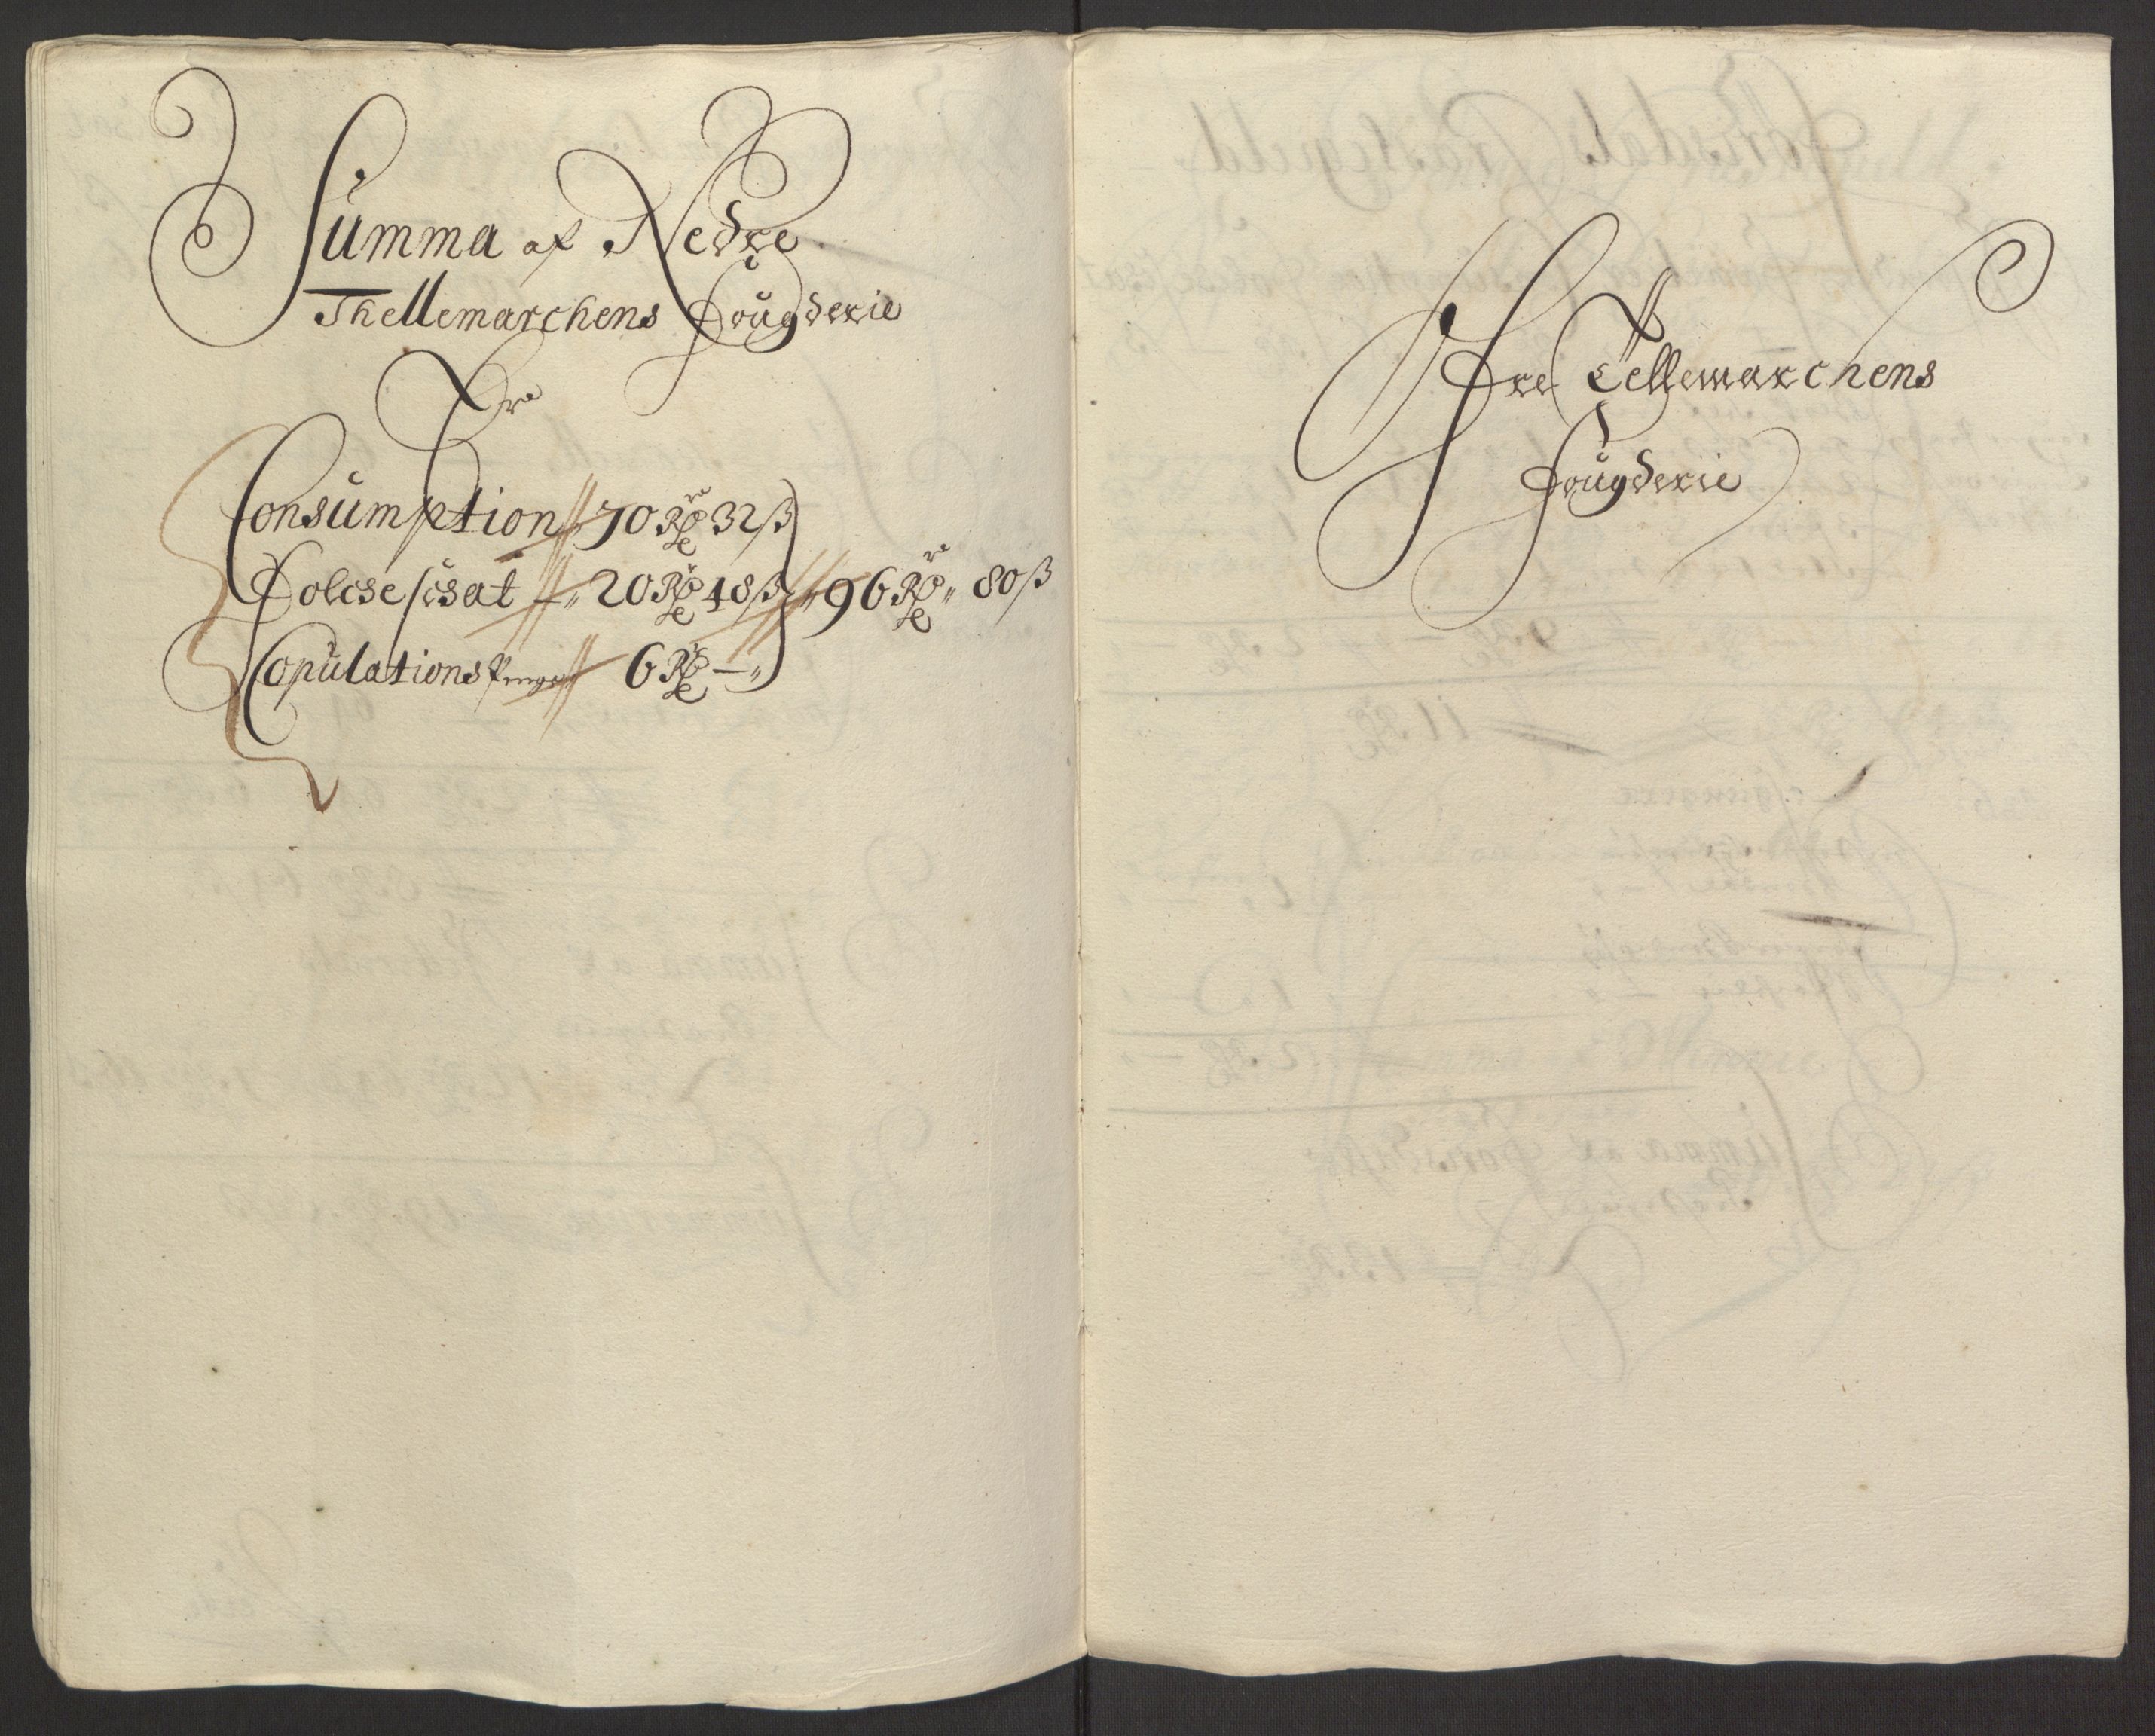 Summa af Nedre
Thellemarchens Fougderie
Er
Consumption 70 Rdr 32 ß
Folcse schat 20 Rdr 48 ß 96 Rdr 80 ß
Copulations Penge 6 Rdr —
Øfre Tellemarchens
Fougderie